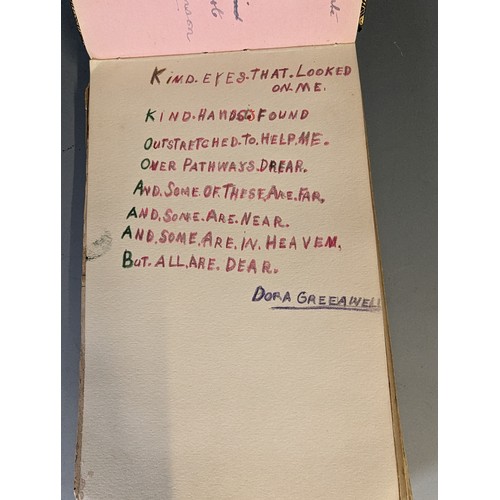 KIND.EYES.THAT.LOOKED
ON.ME.
KIND.HANDS FOUND
OUTSTRETCHED.TO.HELP.ME.
OVER PATHWAYS.DREAR.
AND.SOME.OF.THESE.ARE.FAR.
AND.SOME.ARE.NEAR.
AND.SOME.ARE.IN.HEAVEN.
BUT.ALL.ARE.DEAR.
DORA GREENWELL